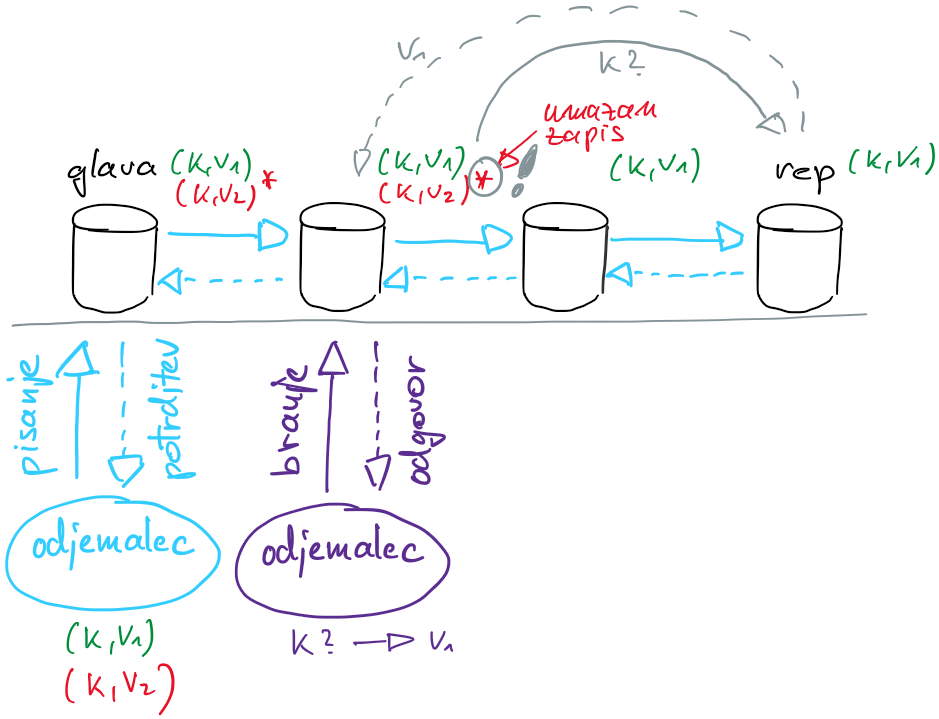 V1
K?
umazan
zapis
glava (K,V1)
(K,V2)*
(K,V1)
(K,V2) * !
(K,V1)
rep (K,V1)
pisanje
potrditev
branje
odgovor
odjemalec
odjemalec
(K,V1)
(K,V2)
K? → V1